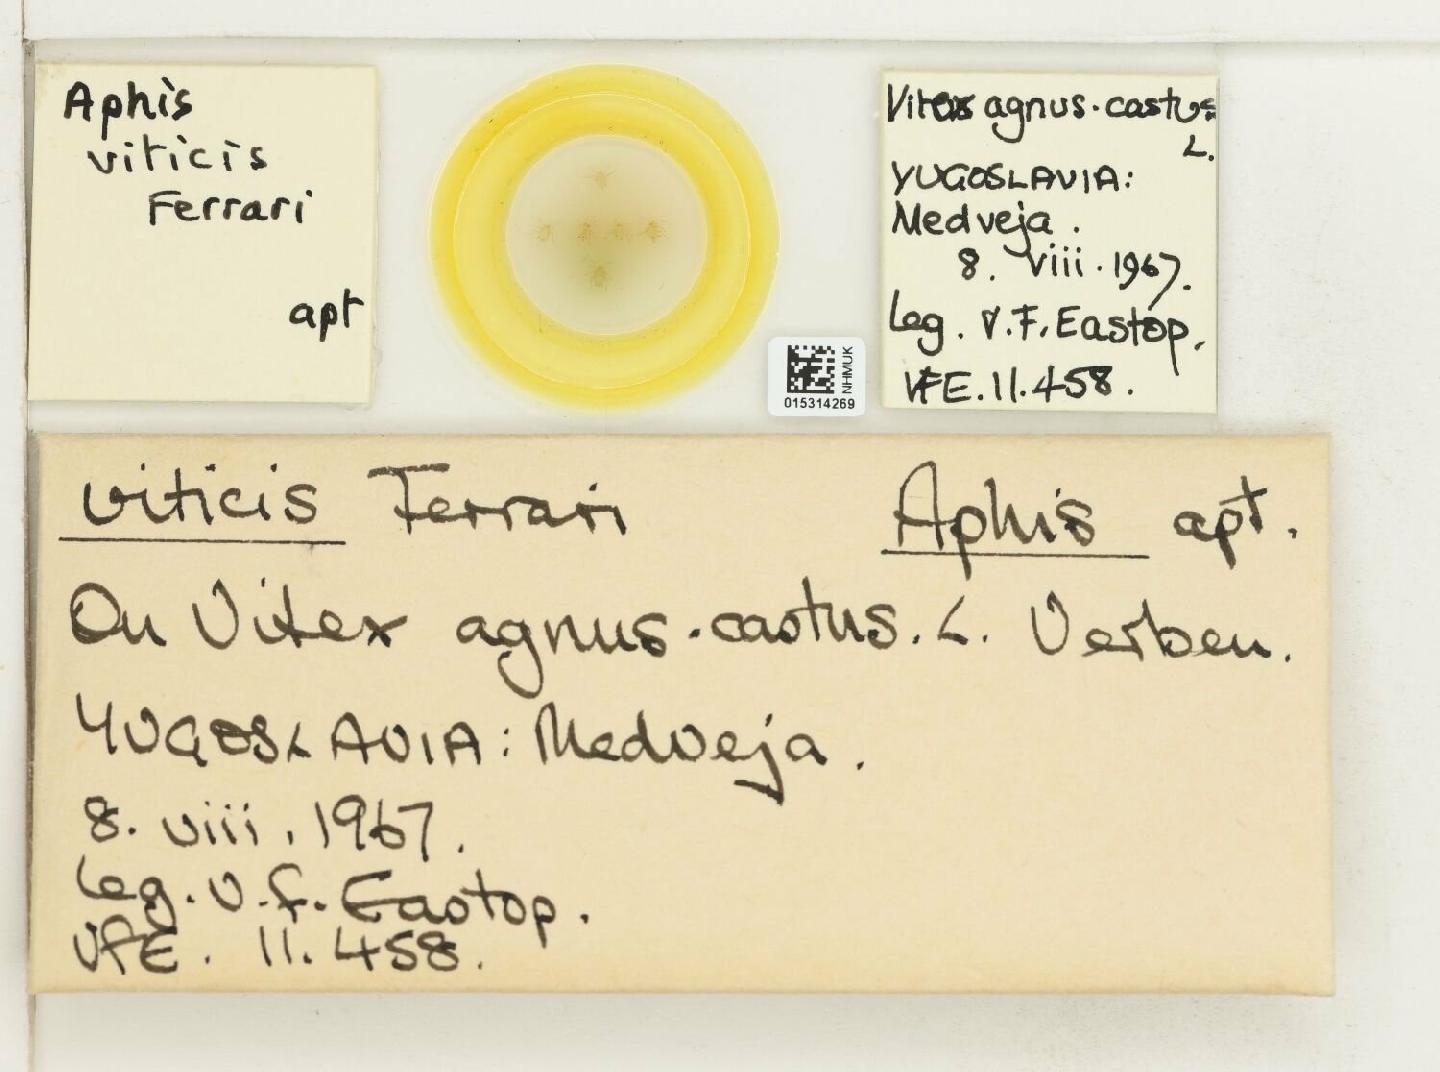 Aphis
viticis
Ferrari
apt
NHMUK
015314269
Vitex agnus-castus
L.
YUGOSLAVIA:
Medveja.
8. viii. 1967.
Leg. V.F. Eastop.
VFE. 11.458.
viticis Ferrari Aphis apt.
On Vitex agnus-castus. L. Verben.
YUGOSLAVIA: Medveja.
8. viii. 1967.
Leg. V.F. Eastop.
VFE. 11.458.